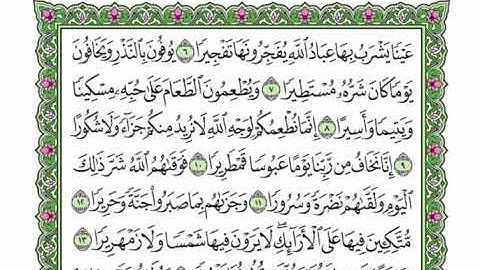 عَيْنًا يَشْرَبُ بِهَا عِبَادُ اللَّهِ يُفَجِّرُونَهَا تَفْجِيرًا ٦ يُوفُونَ بِالنَّذْرِ وَيَخَافُونَ
يَوْمًا كَانَ شَرُّهُ مُسْتَطِيرًا ٧ وَيُطْعِمُونَ الطَّعَامَ عَلَىٰ حُبِّهِ مِسْكِينًا
وَيَتِيمًا وَأَسِيرًا ٨ إِنَّمَا نُطْعِمُكُمْ لِوَجْهِ اللَّهِ لَا نُرِيدُ مِنكُمْ جَزَاءً وَلَا شُكُورًا
٩ إِنَّا نَخَافُ مِن رَّبِّنَا يَوْمًا عَبُوسًا قَمْطَرِيرًا ١٠ فَوَقَىٰهُمُ اللَّهُ شَرَّ ذَٰلِكَ
الْيَوْمِ وَلَقَّىٰهُمْ نَضْرَةً وَسُرُورًا ١١ وَجَزَىٰهُم بِمَا صَبَرُوا جَنَّةً وَحَرِيرًا ١٢
مُّتَّكِـِٔينَ فِيهَا عَلَى الْأَرَائِكِ ۖ لَا يَرَوْنَ فِيهَا شَمْسًا وَلَا زَمْهَرِيرًا ١٣